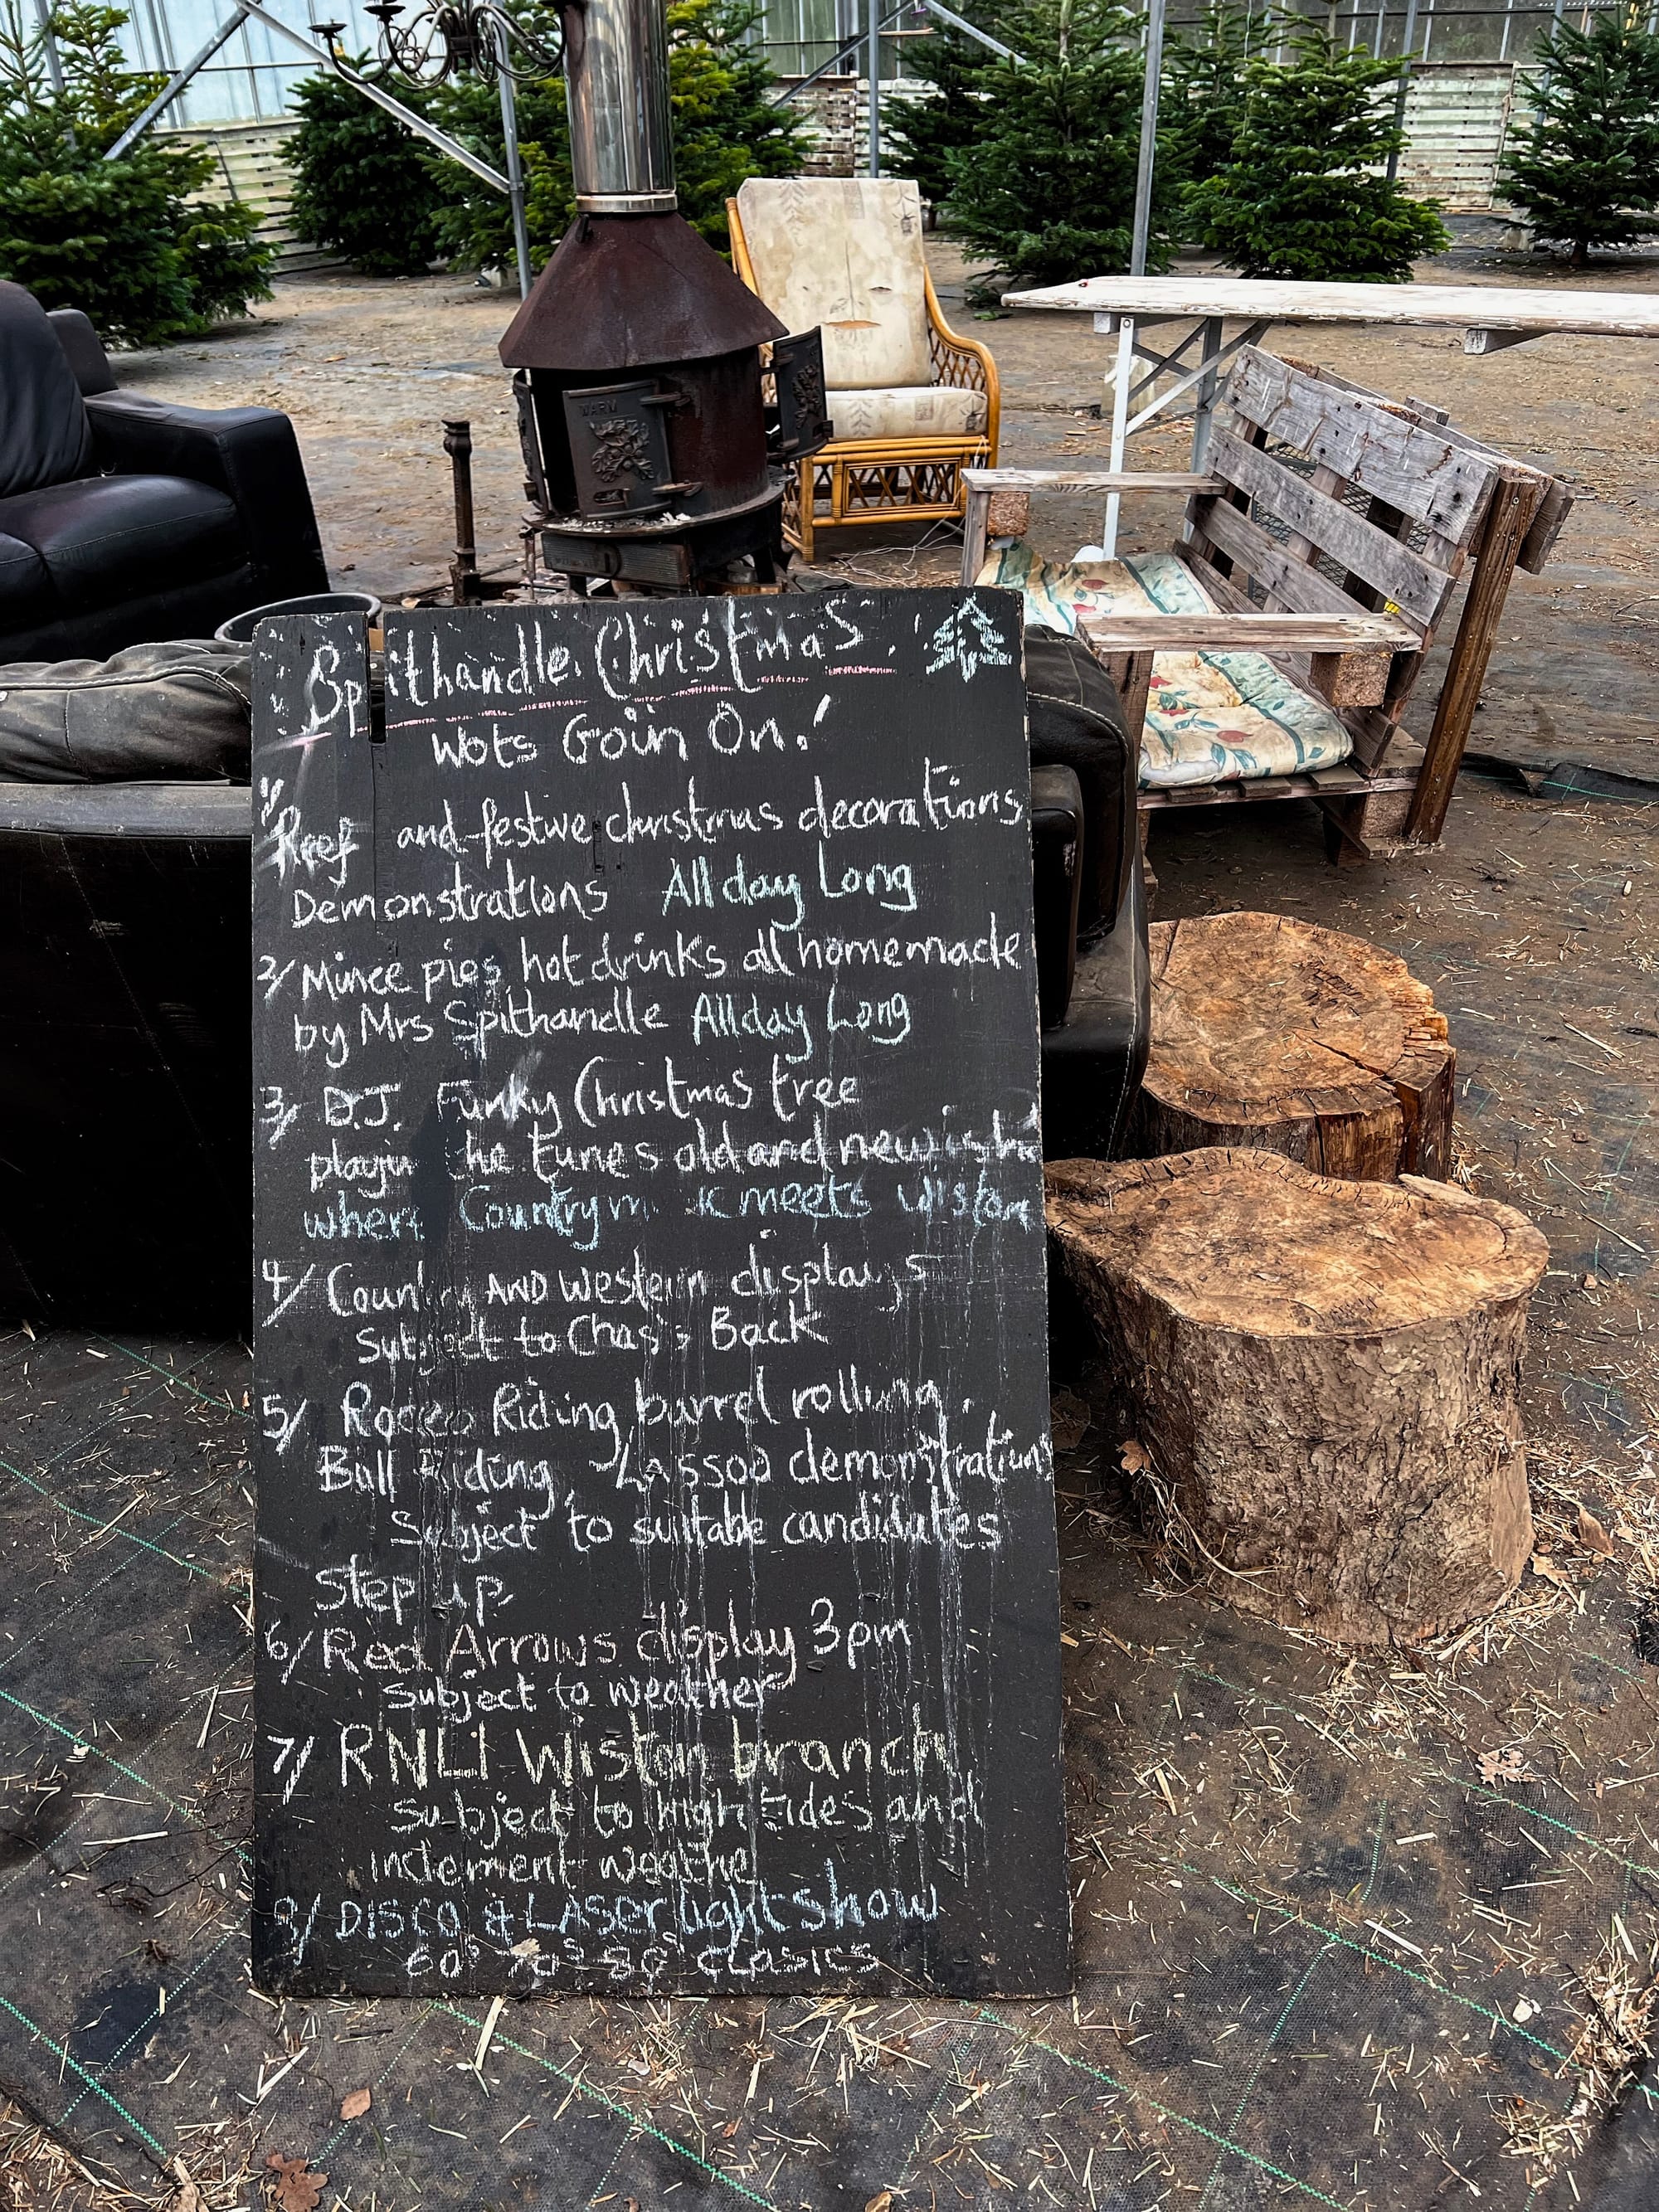 Spithandle Christmas.!
Wots Goin On!
1/
Reef and festive christmas decorations
Demonstrations All day Long
2/ Mince pies hot drinks all homemade
by Mrs Spithandle All day Long
3/ D.J. Funky Christmas tree
playin he tunes old and new
where Country meets Wiston
4/ Country AND Western displays
Subject to Chas's Back
5/ Rodeo Riding, barrel rolling.
Bull Riding, Lassoo demonstrations
Subject to suitable candidates
Step up
6/ Red Arrows display 3pm
subject to weather
7/ RNLI Wiston branch
subject to high tides and
inclement weathe
8/ DISCO & LASer light show
60s 70s 80s CLASICS
WARM